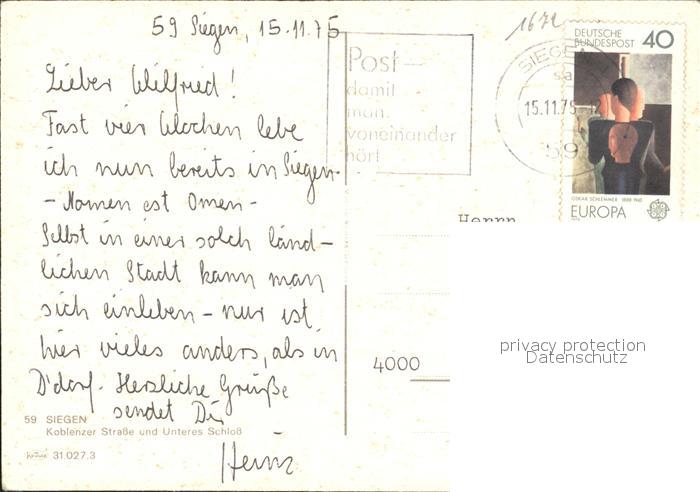 59 Siegen, 15.11.75
1672
Lieber Wilfried!
Fast vier Wochen lebe
ich nun bereits in Siegen-
- Nomen est Omen -
Selbst in einer solch länd-
lichen Stadt kann man
sich einleben - nur ist
hier vieles anders, als in
D'dorf. Herzliche Grüße
sendet Dir
Heinz
59 SIEGEN
Koblenzer Straße und Unteres Schloß
Krüger 31.027.3
Post -
damit
man
voneinander
hört
SIEGEN
15.11.75-12
59
DEUTSCHE
BUNDESPOST 40
OSKAR SCHLEMMER 1888-1943
EUROPA
Herrn
4000
privacy protection
Datenschutz